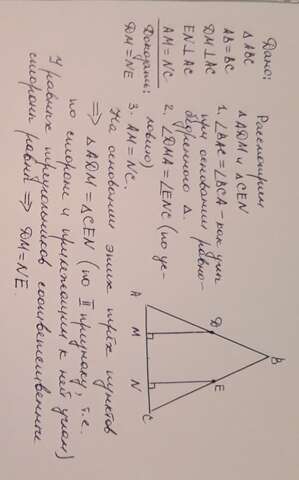 Дано:
△ABC
AB=BC
DM⊥AC
EN⊥AC
AM=NC
Доказать:
DM=NE
Рассмотрим
△ADM и △CEN
1. ∠BAC=∠BCA – как углы
при основании равно-
бедренного △.
2. ∠DMA=∠ENC (по ус-
ловию)
3. AM=NC.
На основании этих трёх пунктов
⇒ △ADM=△CEN (по II признаку, т.е.
по стороне и прилежащим к ней углам)
У равных треугольников соответственные
стороны равны ⇒ DM=NE.
B
D
E
A
M
N
C